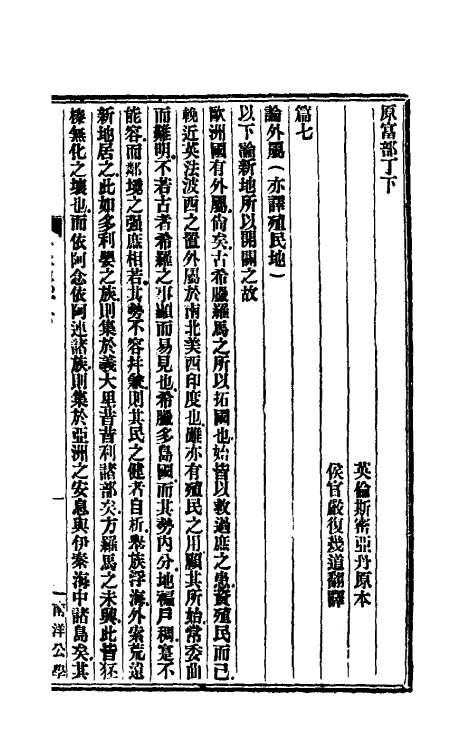 原富部丁下
英倫斯密亞丹原本
侯官嚴復幾道翻譯
篇七
論外屬(亦譯殖民地)
以下論新地所以開闢之故
歐洲國有外屬尙矣古希臘羅馬之所以拓國也始皆以救過庶之患資殖民而已
輓近英法波西之置外屬於南北美西印度也雖亦有殖民之用顧其所始常委曲
而難明不若古者希羅之事顯而易見也希臘多島國而其勢內分地褊戶稠寔不
能容而鄰壤之強庶相若其勢不容幷兼則其民之健者自析舉族浮海外索荒遠
新地居之此如多利嬰之族則集於義大里昔昔利諸部矣方羅馬之未興此皆狉
榛無化之壤也而依阿念依阿連諸族則集於亞洲之安息與伊秦海中諸島矣其
一
南洋公學